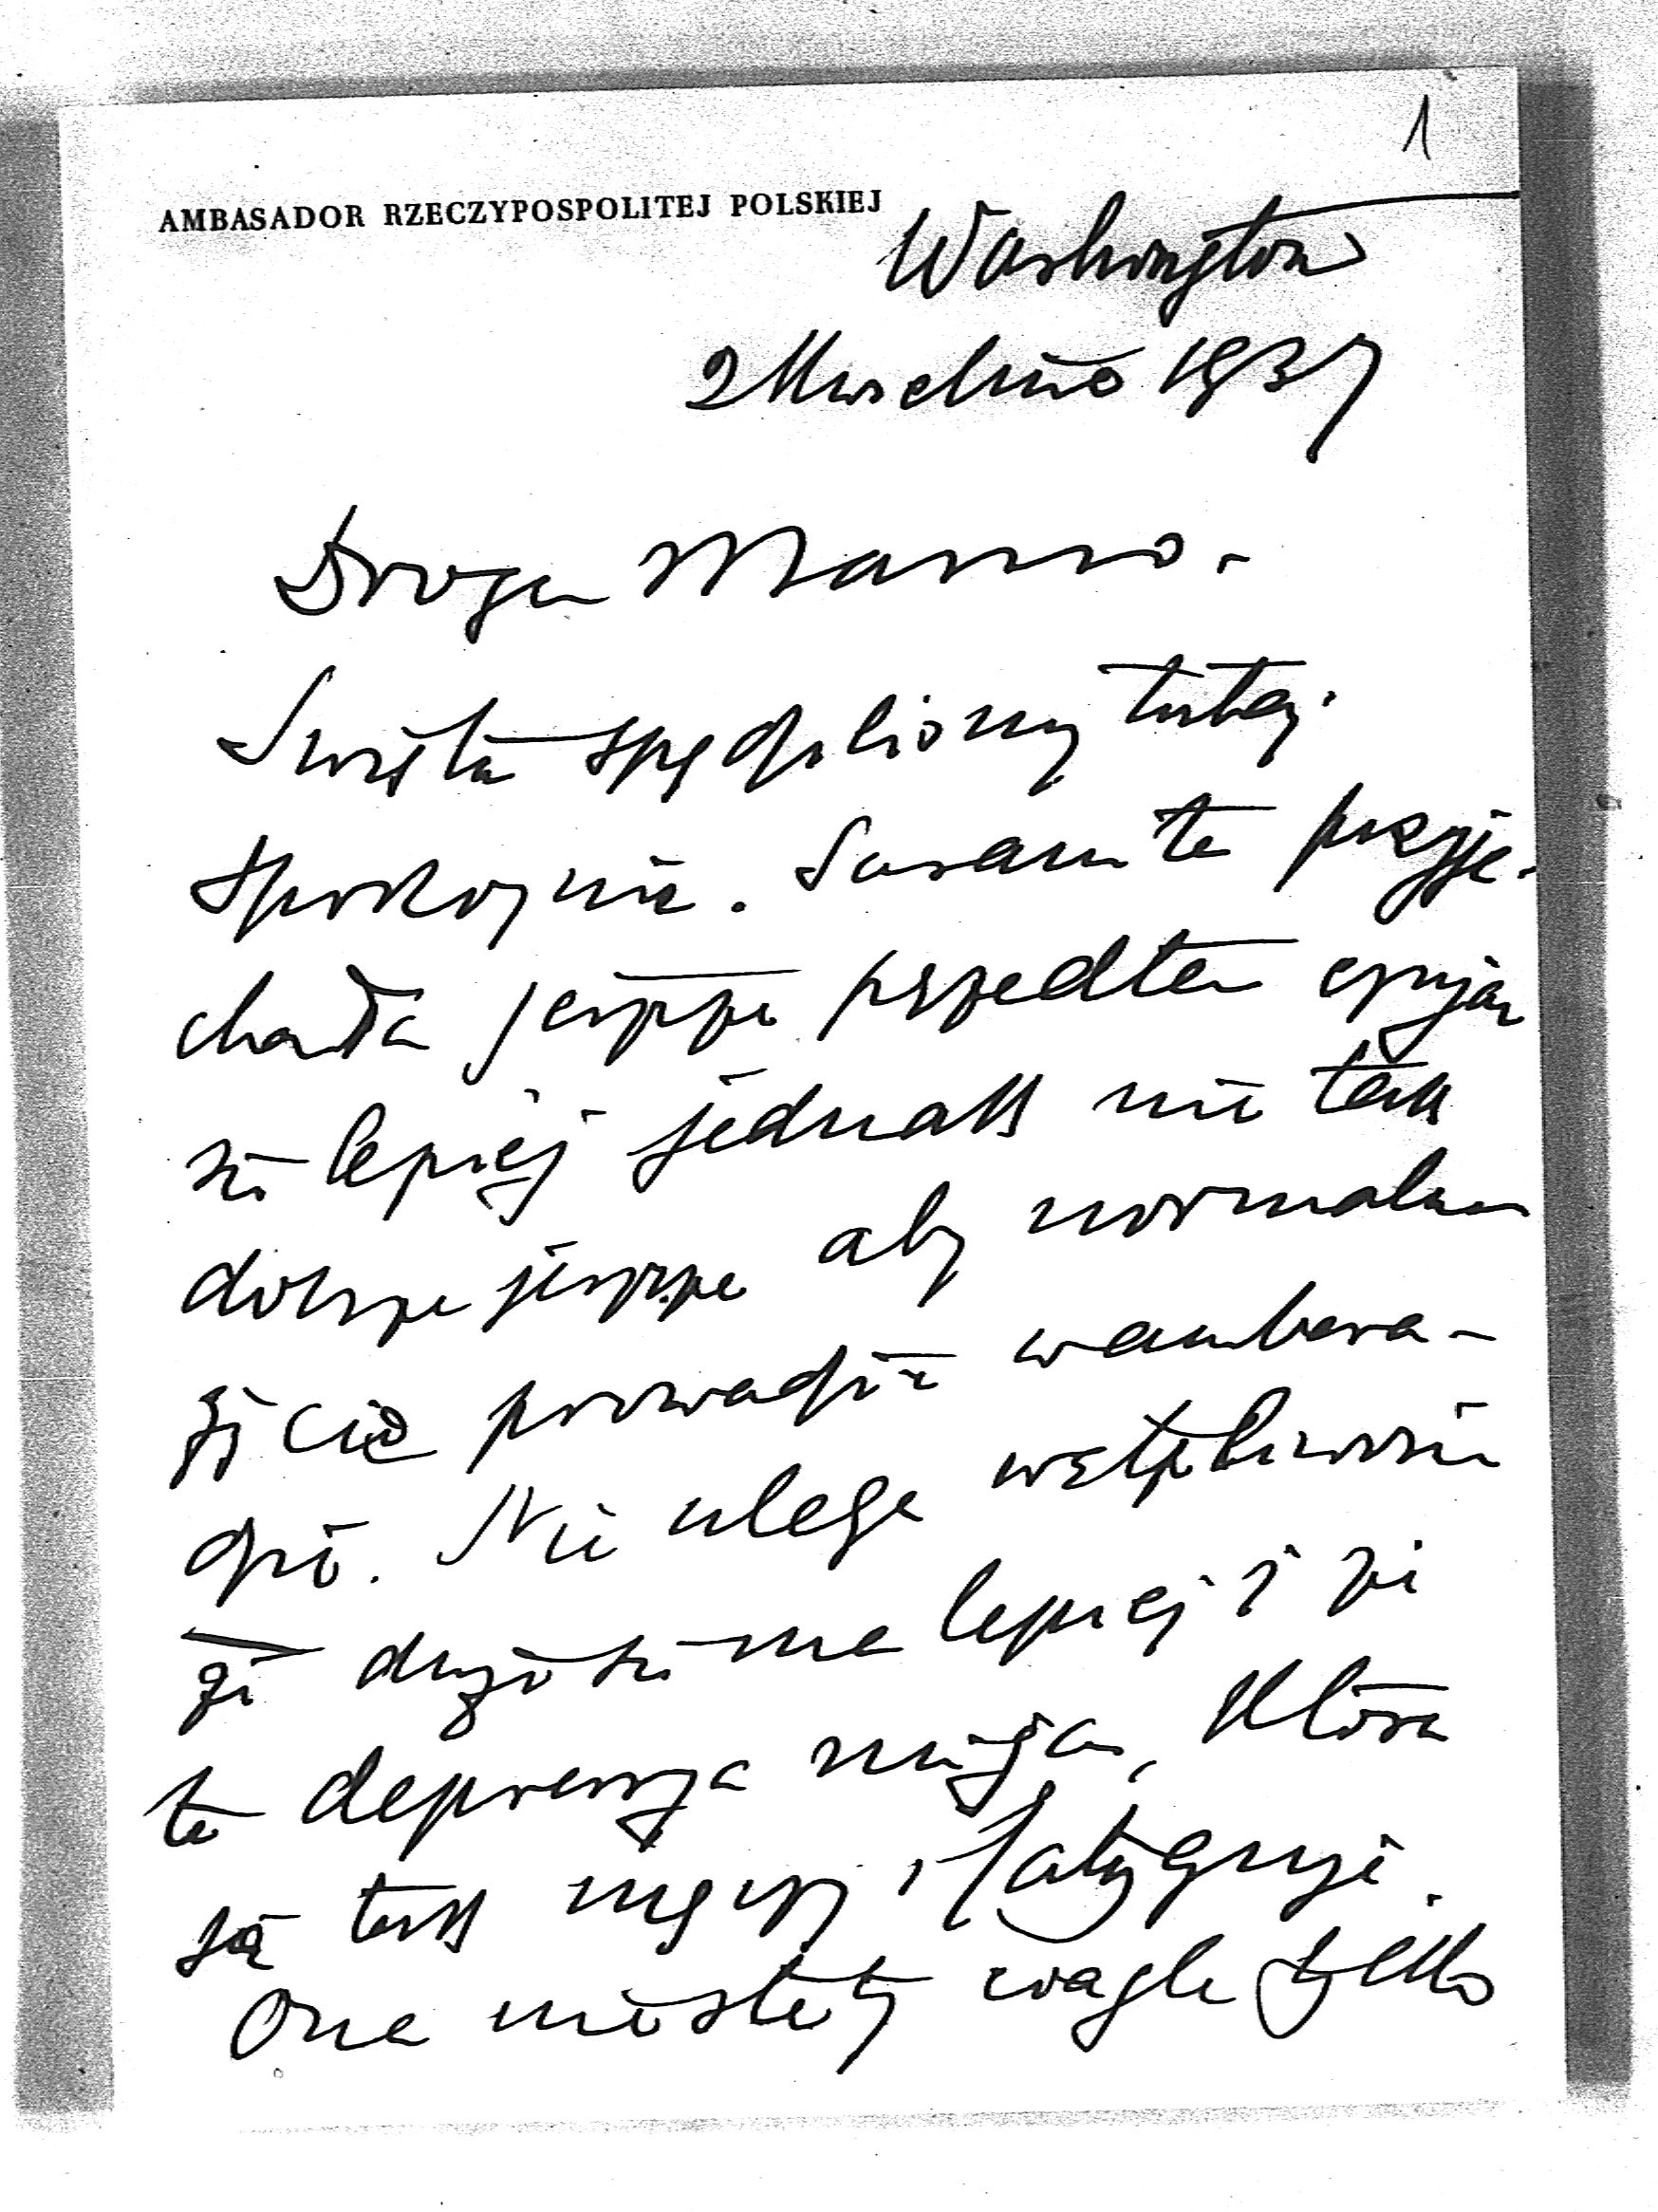 1
AMBASADOR RZECZYPOSPOLITEJ POLSKIEJ
Washington
2 Kwietnia 1937
Droga Mamo.
Święta spędziliśmy tutaj
spokojnie. Susanita przyje-
chała jeszcze przedtem czując
się lepiej jednak nie tak
dobrze jeszcze aby normalne
życie prowadzić w ambasa-
dzie. Nie ulega wątpliwości
że dużo się ma lepiej i że
ta depresja mija, która
ją tak męczy i fatyguje.
Ona niestety ciągle tylko